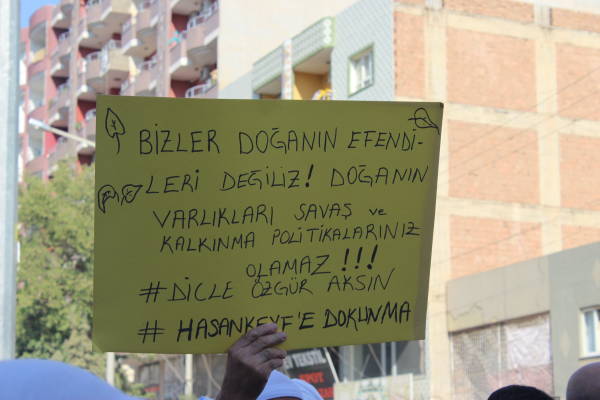 BİZLER DOĞANIN EFENDİ-
LERİ DEĞİLİZ! DOĞANIN
VARLIKLARI SAVAŞ ve
KALKINMA POLİTİKALARINIZ
OLAMAZ!!!
#DİCLE ÖZGÜR AKSIN
# HASANKEYF'E DOKUNMA
TEKSTİL
SPOT